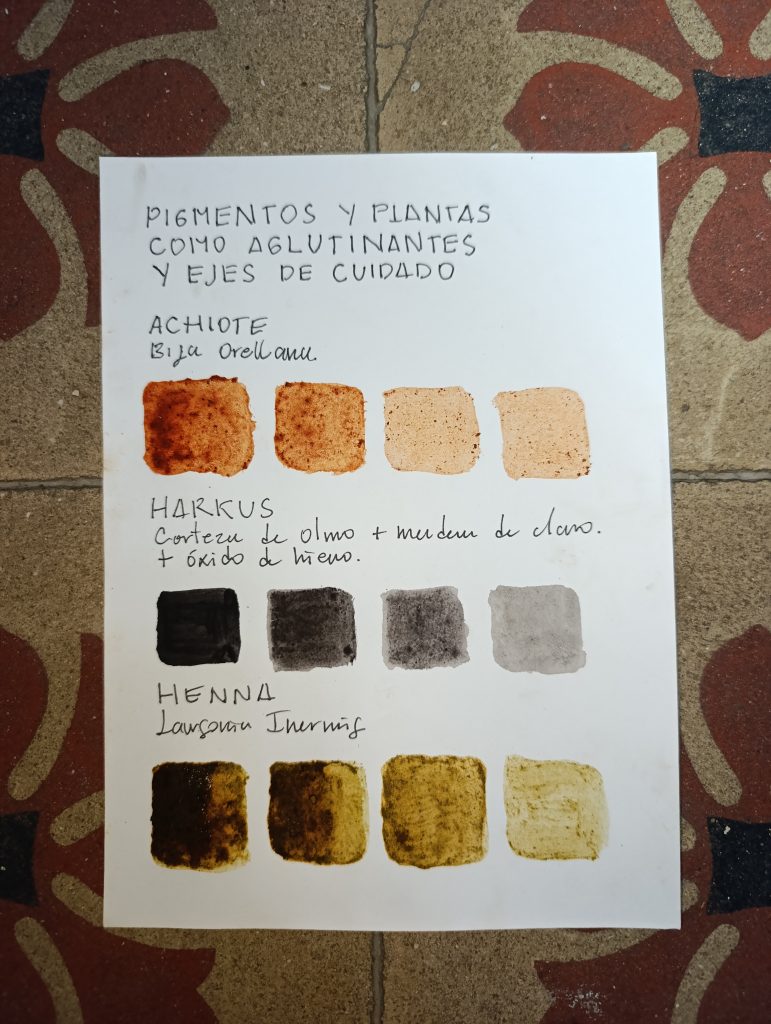 PIGMENTOS Y PLANTAS
COMO AGLUTINANTES
Y EJES DE CUIDADO
ACHIOTE
Bija Orellana.
HARKUS
Corteza de olmo + madera de clavo.
+ óxido de hierro.
HENNA
Lawsonia Inermis